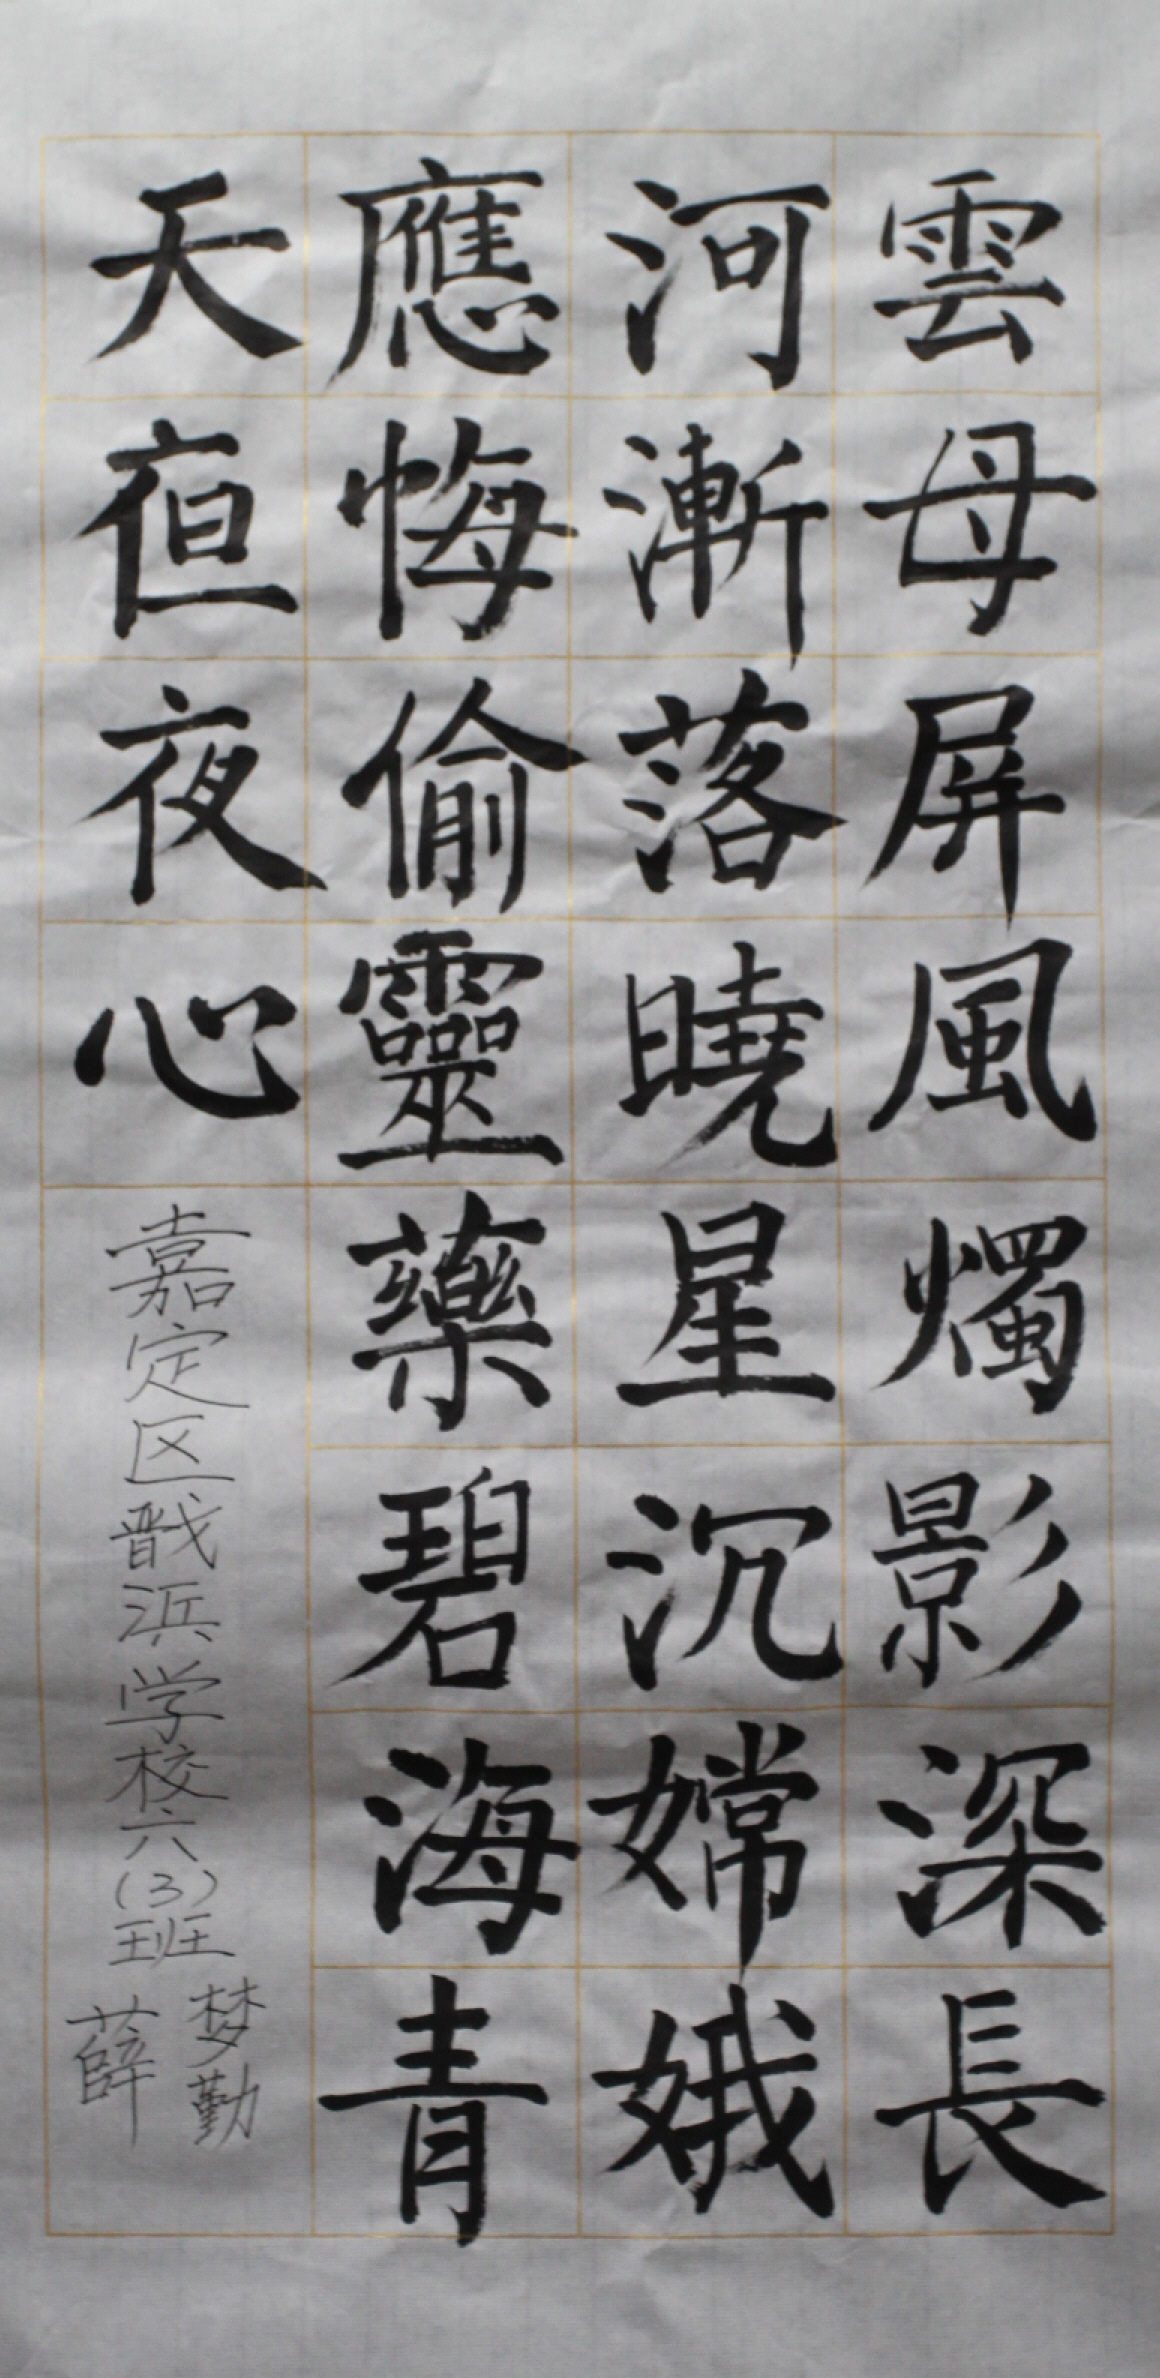 雲母屏風燭影深長
河漸落曉星沉嫦娥
應悔偷靈藥碧海青
天亱夜心
嘉定区戬浜学校六(3)班
薛梦勤